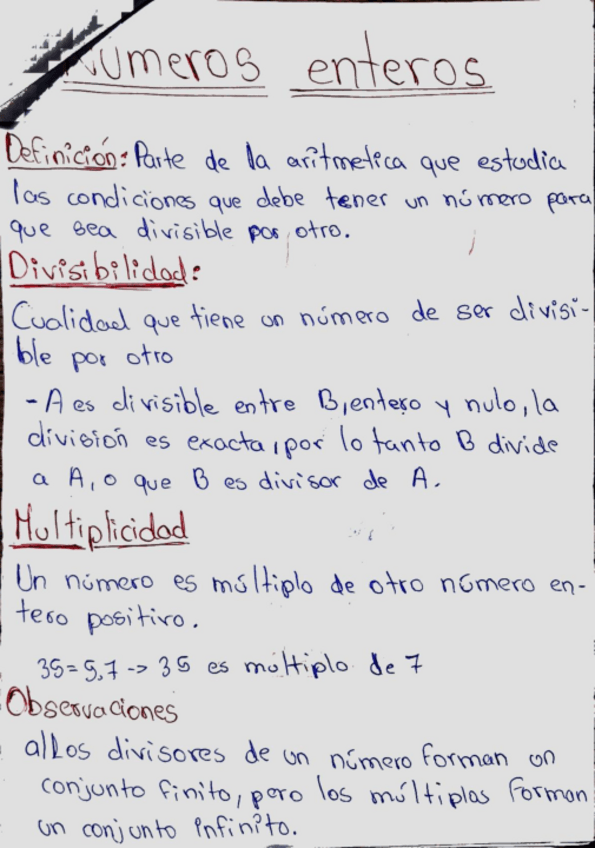 Números enteros
Definición: Parte de la aritmetica que estudia
las condiciones que debe tener un número para
que sea divisible por otro.
Divisibilidad:
Cualidad que tiene un número de ser divisi-
ble por otro
- A es divisible entre B, entero y nulo, la
división es exacta, por lo tanto B divide
a A, o que B es divisor de A.
Multiplicidad
Un número es múltiplo de otro número en-
tero positivo.
35 = 5.7 -> 35 es múltiplo de 7
Observaciones
a) Los divisores de un número forman un
conjunto finito, pero los múltiplos forman
un conjunto infinito.